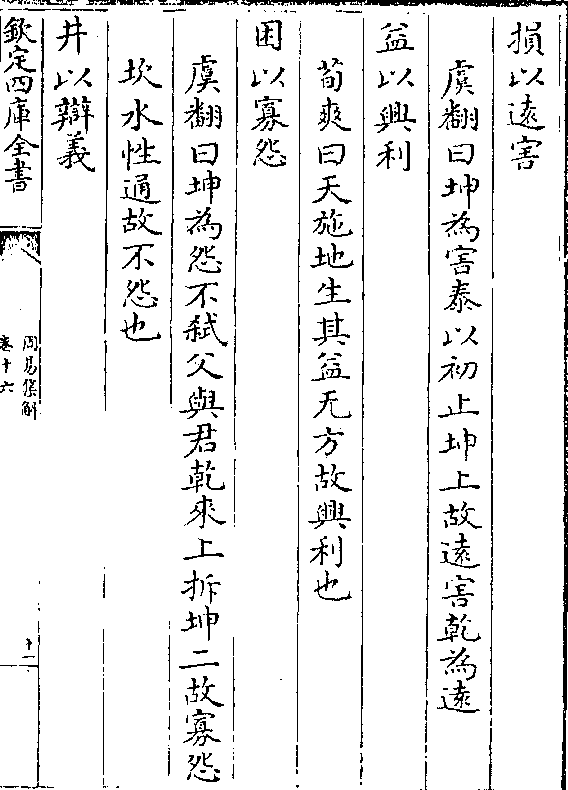 損以遠害
虞翻曰坤為害泰以初止坤上故遠害乾為遠
益以興利
荀爽曰天施地生其益无方故興利也
困以寡怨
虞翻曰坤為怨不弒父與君乾來上折坤二故寡怨
坎水性通故不怨也
井以辯義
欽定四庫全書
周易集解
卷十六
十一